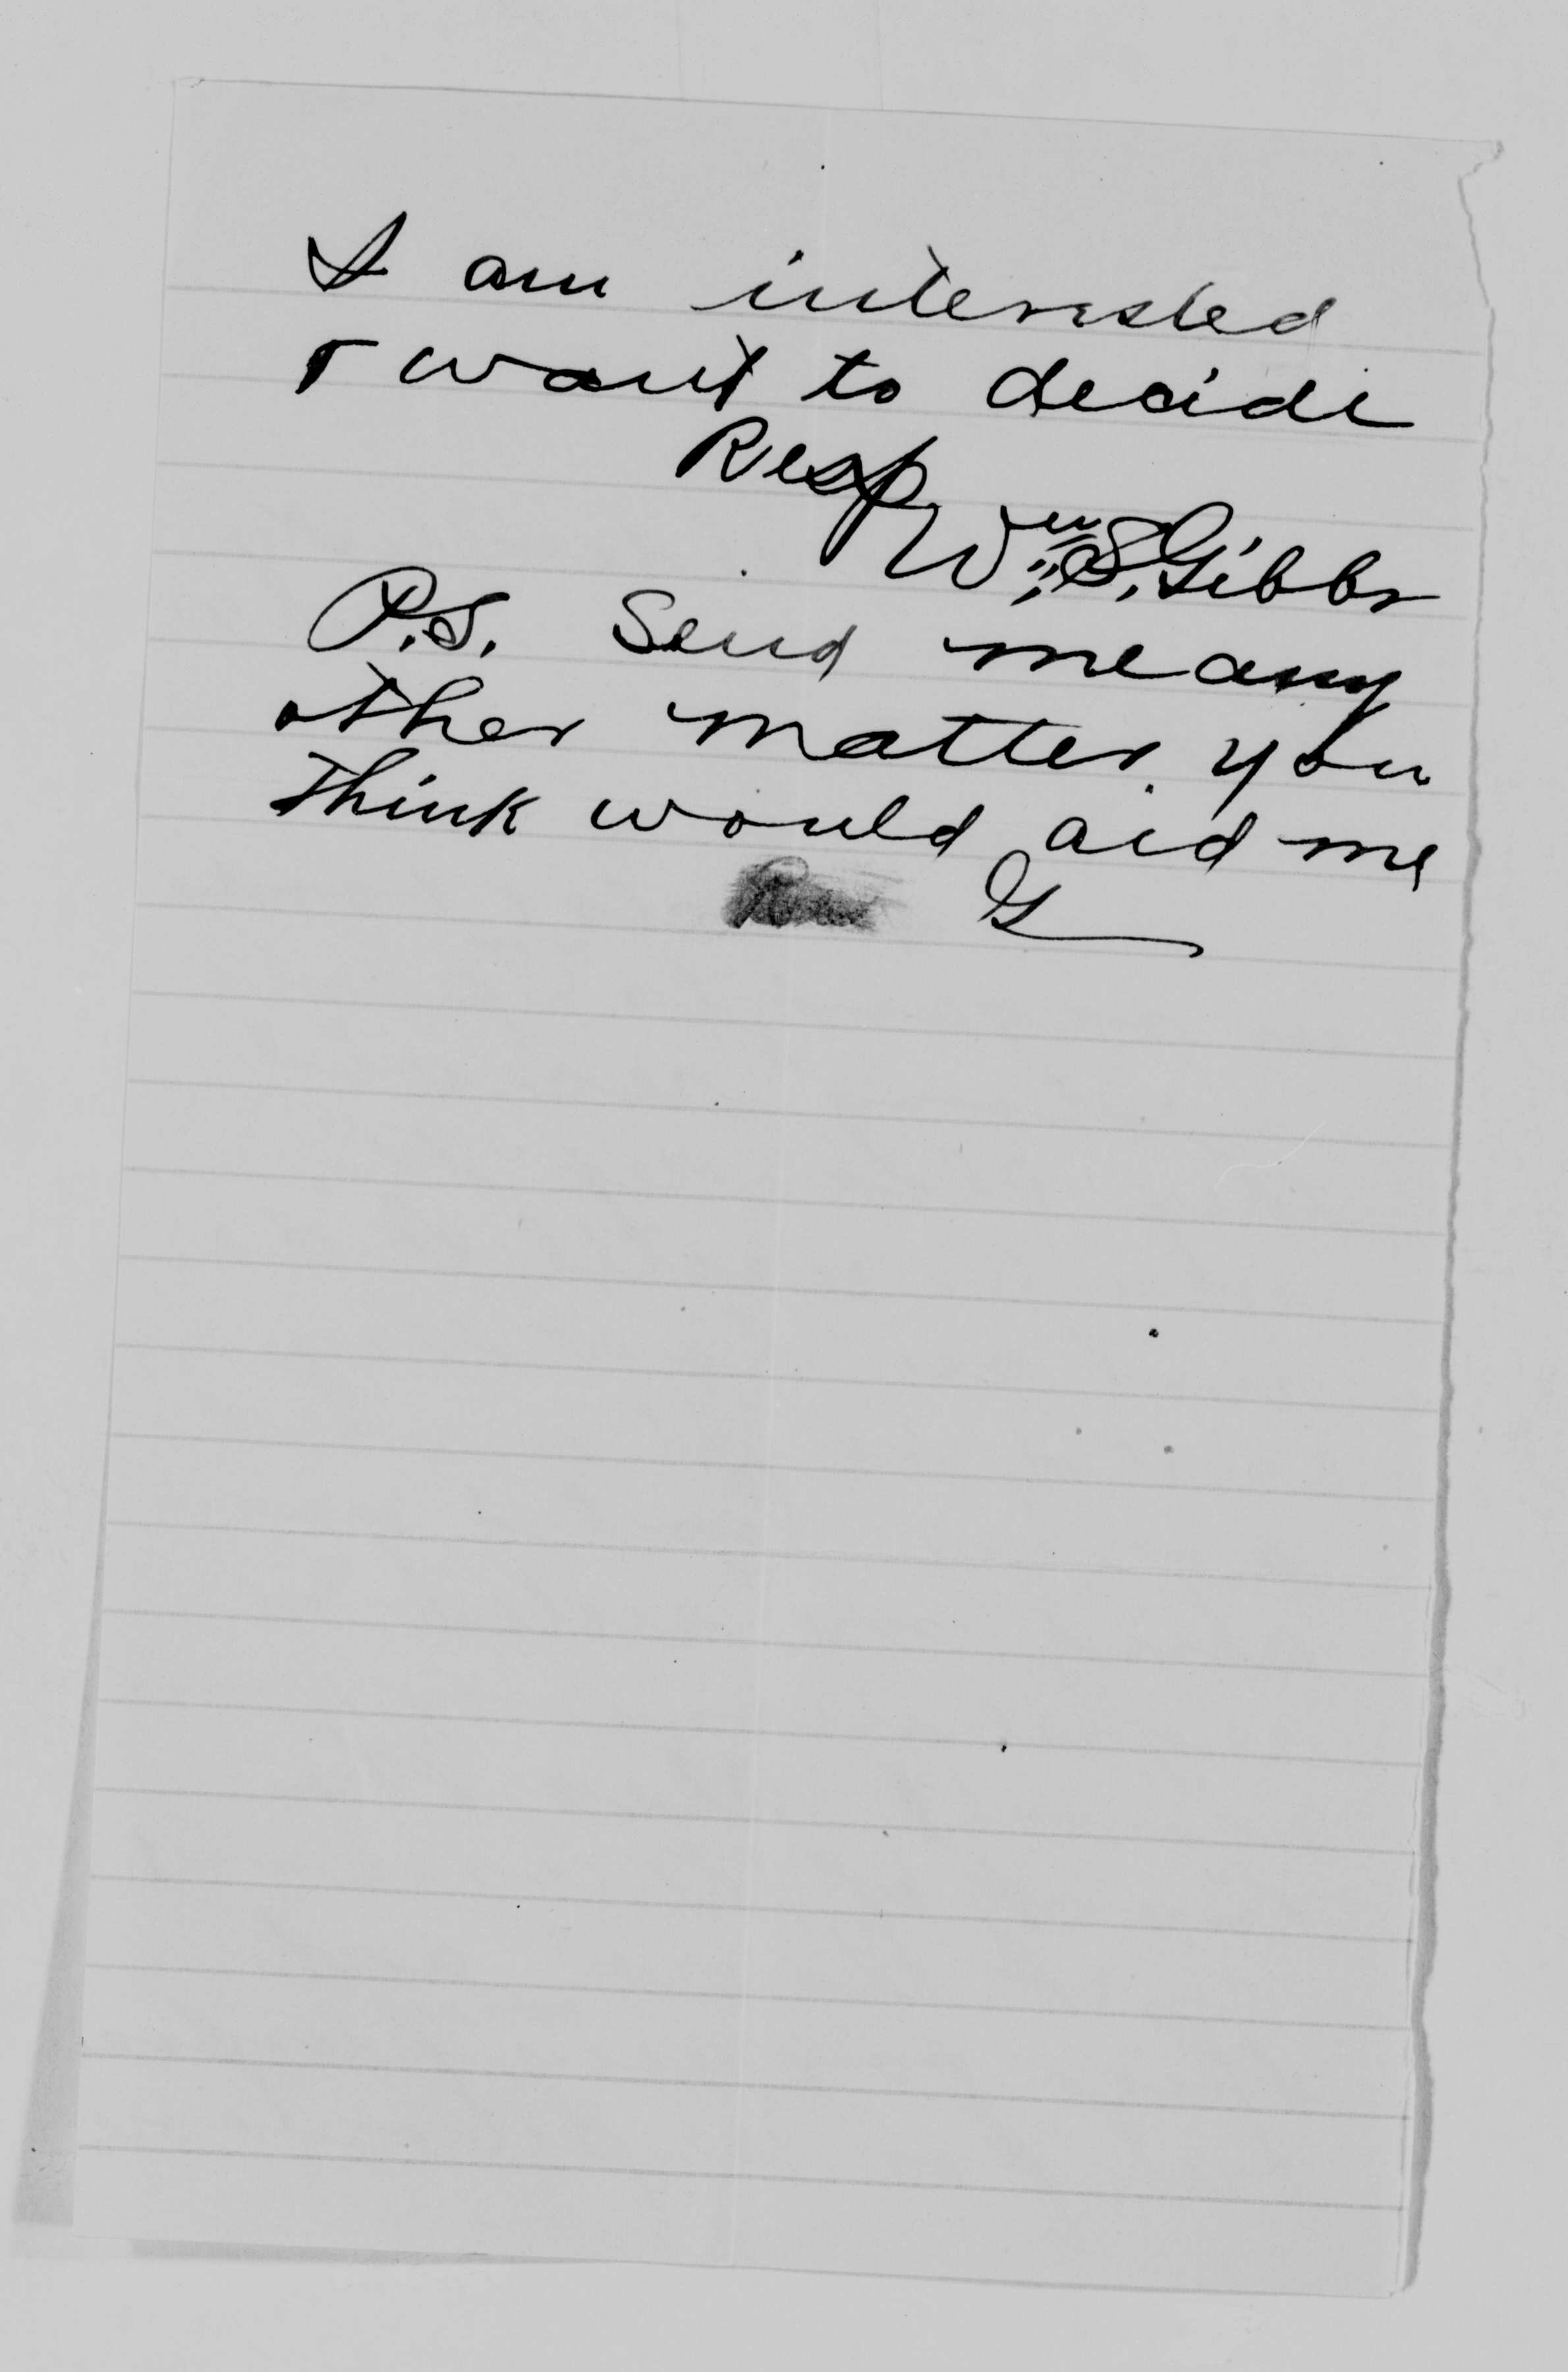 I am interested
& want to decide
Resp
Wm. S. Gibbs
P.S. Send me any
other matter you
think would aid me
G